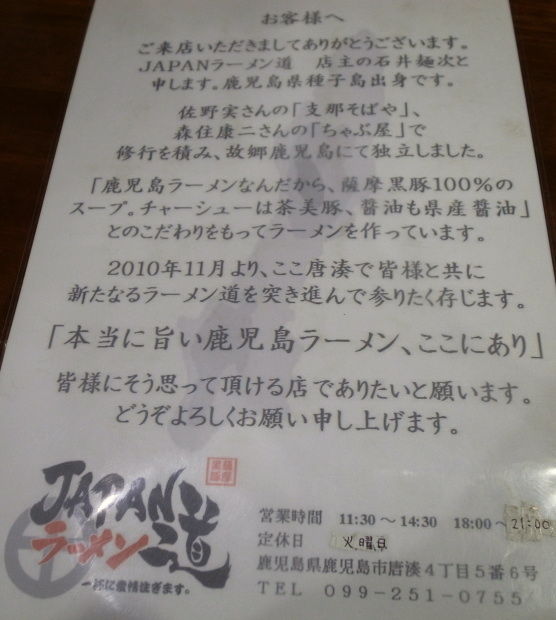 お客様へ
ご来店いただきましてありがとうございます。
JAPANラーメン道　店主の石井麺次と
申します。鹿児島県種子島出身です。
佐野実さんの「支那そばや」、
森住康二さんの「ちゃぶ屋」で
修行を積み、故郷鹿児島にて独立しました。
「鹿児島ラーメンなんだから、薩摩黒豚100％の
スープ。チャーシューは茶美豚、醤油も県産醤油」
とのこだわりをもってラーメンを作っています。
2010年11月より、ここ唐湊で皆様と共に
新たなるラーメン道を突き進んで参りたく存じます。
「本当に旨い鹿児島ラーメン、ここにあり」
皆様にそう思って頂ける店でありたいと願います。
どうぞよろしくお願い申し上げます。
薩摩黒豚
JAPAN
ラーメン道
一杯に愛情注ぎます。
営業時間　11:30～14:30　18:00～21:00
定休日　火曜日
鹿児島県鹿児島市唐湊4丁目5番6号
TEL　099-251-0755